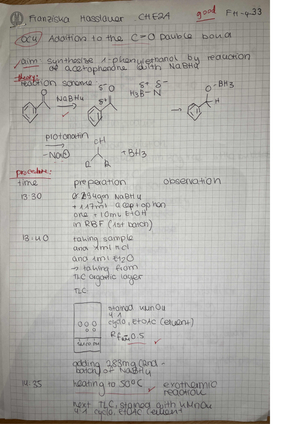 Franziska Hasslauer CHE2A good FM-4-33
OC4 Addition to the C=O Double bond
aim synthesize 1-phenylethanol by reaction
of acetophenone with NaBH4
theory: reaction scheme
O δ- O δ+ δ- O-BH3
NaBH4 H3B-N
H
protonation OH
+BH3
R R
procedure:
time preparation observation
13:30 NaBH4
+ 1.17ml acetophen
one + 10ml EtOH
in RBF (1st batch)
13:40 taking sample
and 1ml HCl
and 1ml Et2O
→ taking from
TLC organic layer
TLC:
stained KMnO4
4:1
cyclo, EtOAc (eluent)
0.5
adding 283mg (2nd
batch) of NaBH4
14:35 heating to 50°C exothermic
reaction
next TLC, stained with KMnO4
4:1 cyclo, EtOAc eluent